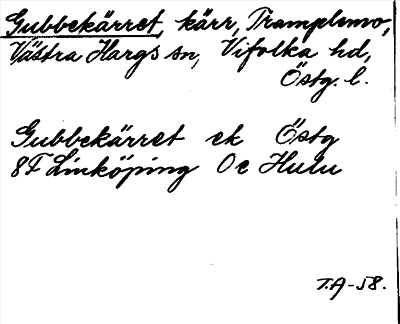 Gubbekärret, kärr, Tramplemo,
Västra Hargs sn, Vifolka hd,
Östg. l.
Gubbekärret ek Östg
8F Linköping 0e Hulu
T.A-58.